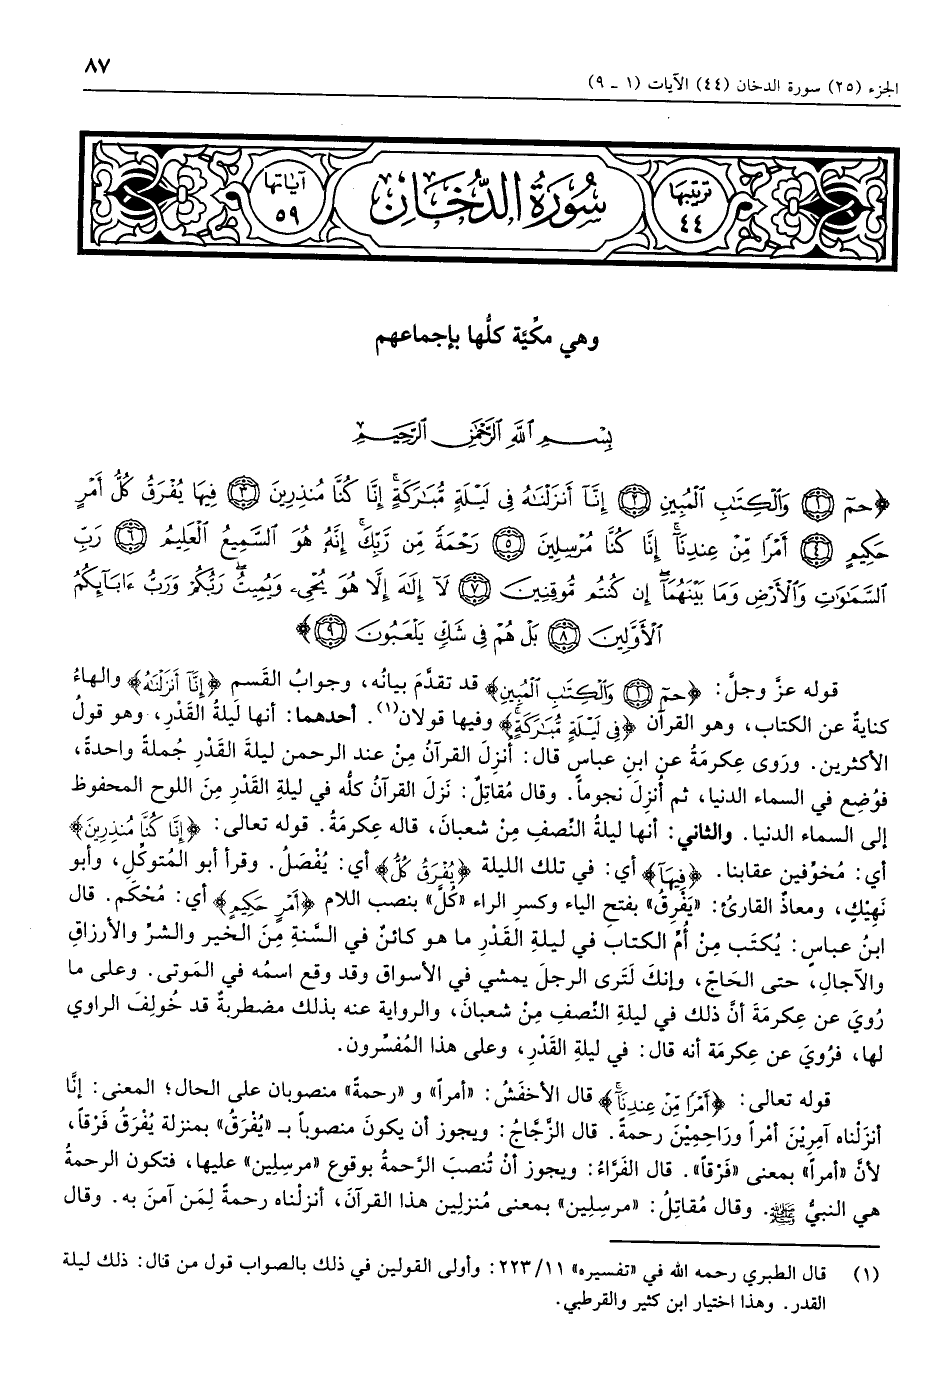 ٨٧
الجزء (٢٥) سورة الدخان (٤٤) الآيات (١ - ٩)
ترتيبها ٤٤
سُورَةُ الدُّخَان
آياتها ٥٩
وهي مكِّيَّة كلُّها بإجماعهم
بِسْمِ اللَّهِ الرَّحْمَٰنِ الرَّحِيمِ
﴿حمٓ ﴿١﴾ وَٱلْكِتَٰبِ ٱلْمُبِينِ ﴿٢﴾ إِنَّآ أَنزَلْنَٰهُ فِى لَيْلَةٍ مُّبَٰرَكَةٍ ۚ إِنَّا كُنَّا مُنذِرِينَ ﴿٣﴾ فِيهَا يُفْرَقُ كُلُّ أَمْرٍ
حَكِيمٍ ﴿٤﴾ أَمْرًا مِّنْ عِندِنَآ ۚ إِنَّا كُنَّا مُرْسِلِينَ ﴿٥﴾ رَحْمَةً مِّن رَّبِّكَ ۚ إِنَّهُۥ هُوَ ٱلسَّمِيعُ ٱلْعَلِيمُ ﴿٦﴾ رَبِّ
ٱلسَّمَٰوَٰتِ وَٱلْأَرْضِ وَمَا بَيْنَهُمَآ ۖ إِن كُنتُم مُّوقِنِينَ ﴿٧﴾ لَآ إِلَٰهَ إِلَّا هُوَ يُحْىِۦ وَيُمِيتُ ۖ رَبُّكُمْ وَرَبُّ ءَابَآئِكُمُ
ٱلْأَوَّلِينَ ﴿٨﴾ بَلْ هُمْ فِى شَكٍّ يَلْعَبُونَ ﴿٩﴾﴾
قوله عزَّ وجلَّ: ﴿حمٓ ﴿١﴾ وَٱلْكِتَٰبِ ٱلْمُبِينِ﴾ قد تقدَّمَ بيانُه، وجوابُ القَسم ﴿إِنَّآ أَنزَلْنَٰهُ﴾ والهاءُ
كنايةٌ عن الكتاب، وهو القرآن ﴿فِى لَيْلَةٍ مُّبَٰرَكَةٍ ۚ﴾ وفيها قولان(١). أحدهما: أنها لَيلةُ القَدْرِ، وهو قولُ
الأكثرين. وروَى عِكرمَةُ عن ابنِ عباسٍ قال: أُنزِلَ القرآنُ مِنْ عند الرحمن ليلةَ القَدْرِ جُملةً واحدةً،
فوُضِع في السماء الدنيا، ثم أُنزِلَ نجوماً. وقال مُقاتِلٌ: نَزلَ القرآنُ كلُّه في ليلةِ القَدْرِ مِنَ اللوح المحفوظ
إلى السماء الدنيا. والثاني: أنها ليلةُ النِّصفِ مِنْ شعبانَ، قاله عِكرمَةُ. قوله تعالى: ﴿إِنَّا كُنَّا مُنذِرِينَ﴾
أي: مُخوِّفين عقابنا. ﴿فِيهَآ﴾ أي: في تلك الليلة ﴿يُفْرَقُ كُلُّ﴾ أي: يُفْصَلُ. وقرأ أبو المُتوكِّلِ، وأبو
نَهِيْكٍ، ومعاذٌ القارئُ: «يَفْرِقُ» بفتح الياء وكسرِ الراء «كُلَّ» بنصب اللام ﴿أَمْرٍ حَكِيمٍ﴾ أي: مُحْكَم. قال
ابنُ عباسٍ: يُكتَب مِنْ أُمِّ الكتاب في ليلةِ القَدْرِ ما هو كائنٌ في السَّنةِ مِنَ الخير والشرِّ والأرزاقِ
والآجالِ، حتى الحَاجِّ، وإنكَ لَترى الرجلَ يمشي في الأسواق وقد وقع اسمُه في المَوتى. وعلى ما
رُويَ عن عِكرمَةَ أنَّ ذلك في ليلةِ النِّصفِ مِنْ شعبانَ، والرواية عنه بذلك مضطربةٌ قد خُولِفَ الراوي
لها، فرُويَ عن عِكرمَة أنه قال: في ليلةِ القَدْرِ، وعلى هذا المُفسِّرون.
قوله تعالى: ﴿أَمْرًا مِّنْ عِندِنَآ ۚ﴾ قال الأخفَشُ: «أمراً» و «رحمةً» منصوبان على الحال؛ المعنى: إنَّا
أنزَلْناه آمِرِيْنَ أمْراً ورَاحِمِيْنَ رحمةً. قال الزَّجَّاجُ: ويجوز أن يكونَ منصوباً بـ «يُفْرَقُ» بمنزلة يُفْرَقُ فَرْقاً،
لأنَّ «أمراً» بمعنى «فَرْقاً». قال الفَرَّاءُ: ويجوز أنْ تُنصَبَ الرَّحمةُ بوقوعِ «مرسِلِين» عليها، فتكون الرحمةُ
هي النبيُّ ﷺ. وقال مُقاتِلُ: «مرسِلِين» بمعنى مُنزلِين هذا القرآنَ، أنزلْناه رحمةً لِمَن آمنَ به. وقال
(١) قال الطبري رحمه الله في «تفسيره» ٢٢٣/١١: وأولى القولين في ذلك بالصواب قول من قال: ذلك ليلة
القدر. وهذا اختيار ابن كثير والقرطبي.